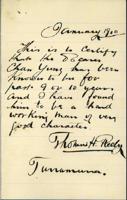 January 1900
This is to certify
that the Bearer
Chan Yung has been
known to me for
past 9 or 10 years
and I have found
him to be a hard
working man of very
good character
Thomas H. Redy
Turramurra.